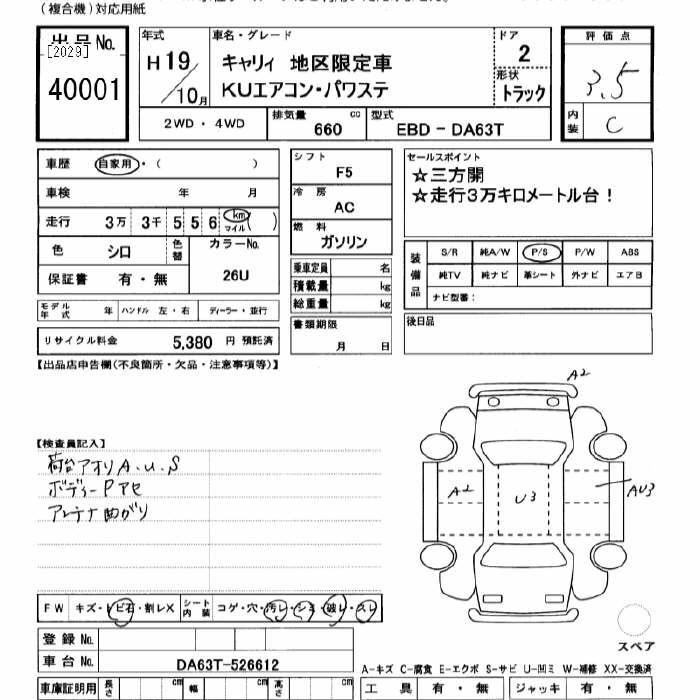 (複合機)対応用紙
出品No. [2029] 40001
年式 H19/10月
車名・グレード キャリィ 地区限定車
KUエアコン・パワステ
ドア 2
形状 トラック
2WD・4WD 排気量 660 cc 型式 EBD-DA63T
評価点 3.5
内装 C
車歴 自家用・( )
車検 年 月
走行 3万 3千 5 5 6 km マイル ( )
色 シロ 色替 カラーNo. 26U
保証書 有・無
モデル年式 年 ハンドル 左・右 ディーラー・並行
リサイクル料金 5,380 円 預託済
シフト F5
冷房 AC
燃料 ガソリン
乗車定員 名
積載量 kg
総重量 kg
書類期限 月 日
セールスポイント
☆三方開
☆走行3万キロメートル台!
装備品 S/R 純A/W P/S P/W ABS
純TV 純ナビ 革シート 外ナビ エアB
ナビ型番:
後日品
【出品店申告欄(不良箇所・欠品・注意事項等)】
【検査員記入】
荷台アオリA.U.S
ボディーPアセ
アンテナ曲がり
A2
A2
U3
AU3
スペア
FW キズ・トビ石・割レX シート内装 コゲ・穴・汚レ・シミ・破レ・スレ
登録No.
車台No. DA63T-526612
A-キズ C-腐食 E-エクボ S-サビ U-凹ミ W-補修 XX-交換済
車庫証明用 長さ cm 幅 cm 高さ cm
工具 有・無 ジャッキ 有・無